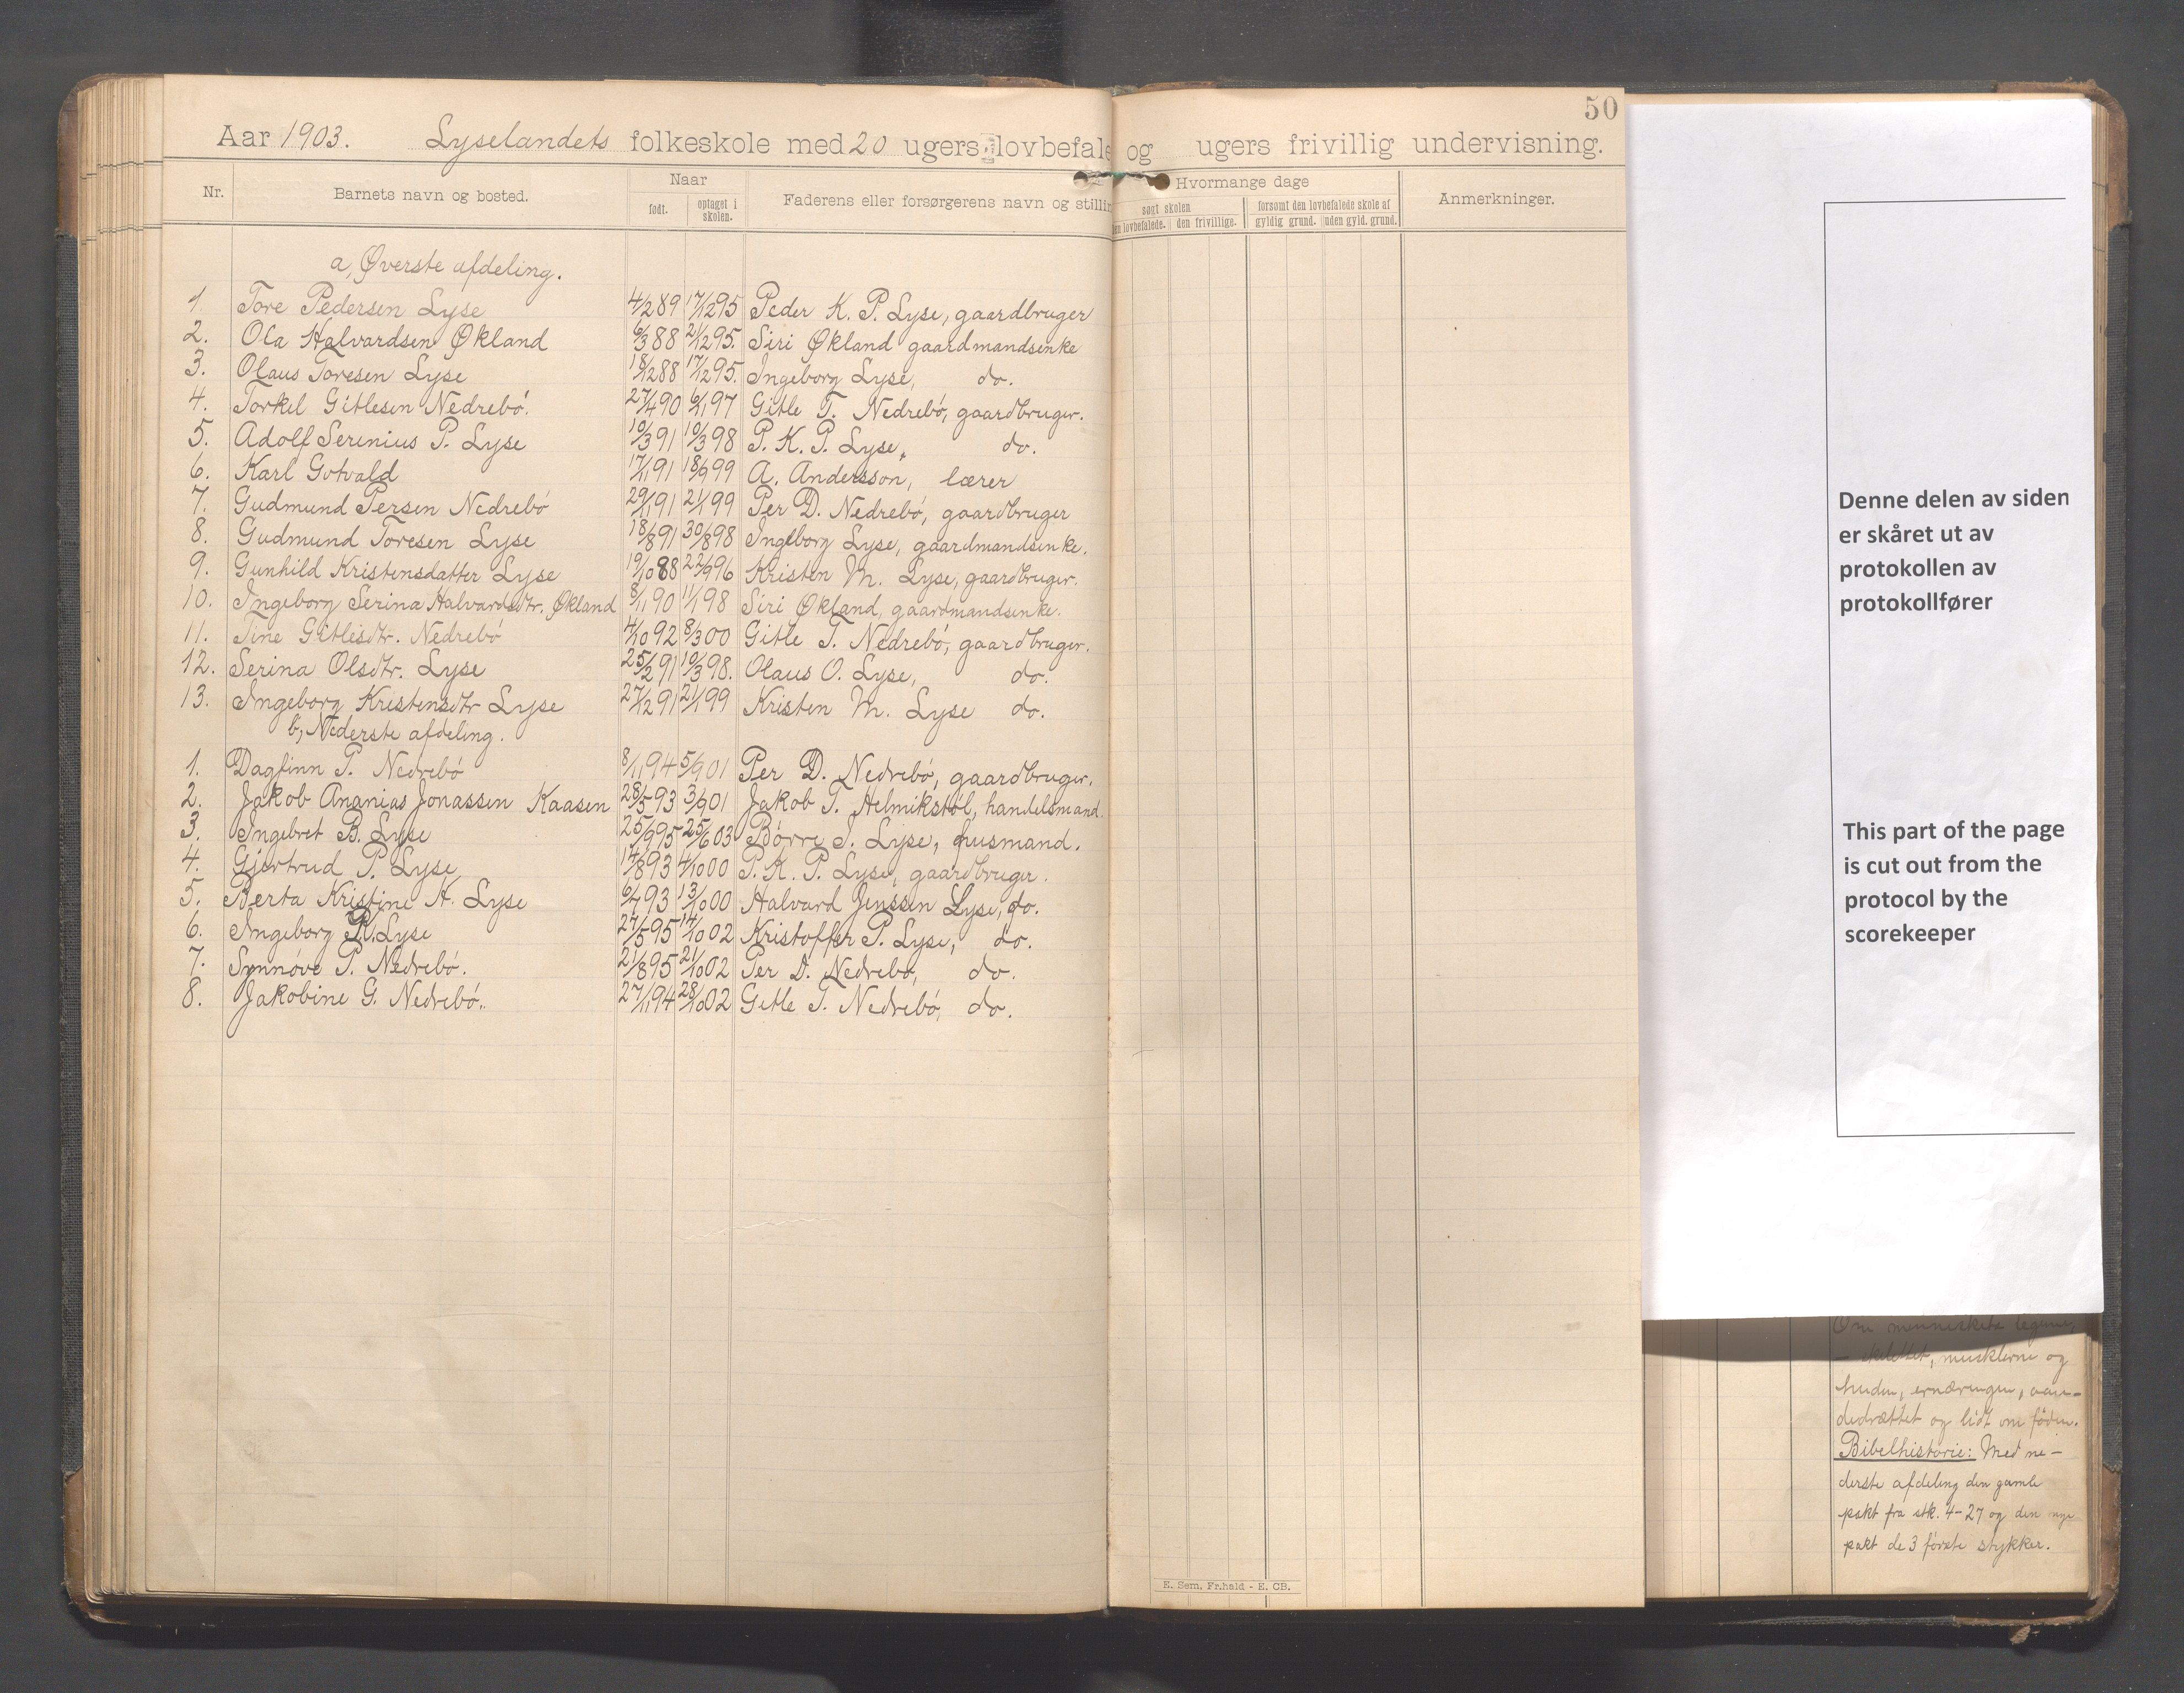 50
Aar 1903. Lyselandets folkeskole med 20 ugers lovbefale og ugers frivillig undervisning.
Nr. Barnets navn og bosted. Naar født. optaget i skolen. Faderens eller forsørgerens navn og stillin Hvormange dage søgt skolen en lovbefalede. den frivillige. forsømt den lovbefalede skole af gyldig grund. uden gyld. grund. Anmerkninger.
a, Øverste afdeling.
1. Tore Pedersen Lyse 4/2 89 17/12 95 Peder K. P. Lyse, gaardbruger
2. Ola Halvardsen Økland 6/3 88 2/12 95. Siri Økland gaardmandsenke
3. Olaus Toresen Lyse 18/12 88 17/12 95. Ingeborg Lyse, do.
4. Torkel Gitlesen Nedrebö. 27/4 90 6/11 97 Gitle T. Nedrebö, gaardbruger.
5. Adolf Serenius P. Lyse 10/3 91 10/3 98 P. K. P. Lyse, do.
6. Karl Gotvald 17/1 91 18/9 99 A. Andersson, lærer
7. Gudmund Persen Nedrebö 29/1 91 21/1 99 Per D. Nedrebö, gaardbruger
8. Gudmund Toresen Lyse 18/8 91 30/8 98 Ingeborg Lyse, gaardmandsenke.
9. Gunhild Kristensdatter Lyse 19/10 88 22/9 96 Kristen M. Lyse, gaardbruger.
10. Ingeborg Serina Halvardsdtr. Økland 8/11 90 11/1 98 Siri Økland, gaardmandsenke.
11. Tine Gitlesdtr. Nedrebö 4/10 92 8/3 00 Gitle T. Nedrebö, gaardbruger.
12. Serina Olsdtr. Lyse 25/2 91 10/3 98. Olaus O. Lyse, do.
13. Ingeborg Kristensdtr Lyse 27/12 91 21/1 99 Kristen M. Lyse do.
b, Nederste afdeling.
1. Dagfinn P. Nedrebö 8/11 94 5/9 01 Per D. Nedrebö, gaardbruger.
2. Jakob Ananias Jonassen Kaasen 28/5 93 3/9 01 Jakob T. Helmikstöl, handelsmand.
3. Ingebret B. Lyse 25/9 95 25/6 03 Börre I. Lyse, husmand.
4. Gjertrud P. Lyse 14/8 93 4/10 00 P. K. P. Lyse, gaardbruger.
5. Berta Kristine H. Lyse 6/7 93 13/10 00 Halvard Jenssen Lyse, do.
6. Ingeborg K. Lyse 27/5 95 14/10 02 Kristoffer P. Lyse, do.
7. Synnöve P. Nedrebö. 21/8 95 21/10 02 Per D. Nedrebö, do.
8. Jakobine G. Nedrebö. 27/11 94 28/10 02 Gitle T. Nedrebö, do.
E. Sem. Fr.hald - E. CB.
Denne delen av siden
er skåret ut av
protokollen av
protokollfører
This part of the page
is cut out from the
protocol by the
scorekeeper
Om menneskets legeme,
skelettet, musklerne og
huden, ernæringen, aan-
dedrættet og lidt om föden.
Bibelhistorie: Med ne-
derste afdeling den gamle
pakt fra stk. 4-27 og den nye
pakt de 3 förste stykker.